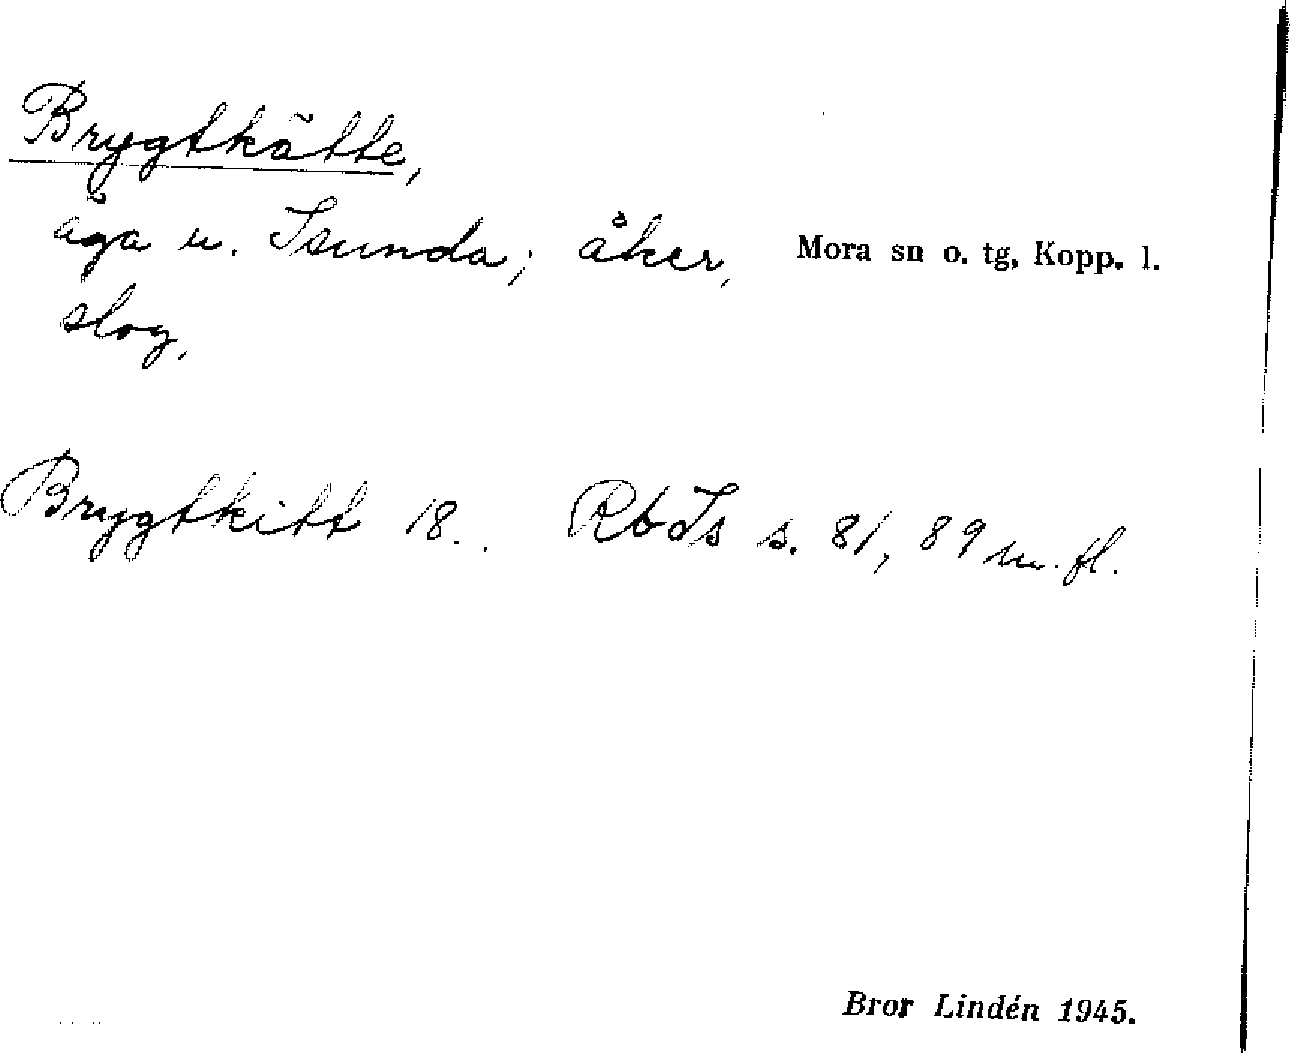 Brygtkätte,
äga u. Isunda; åker, Mora sn o. tg, Kopp. l.
slog,
Brygtkitt 18. . RbIs s. 81, 89 m. fl.
Bror Lindén 1945.